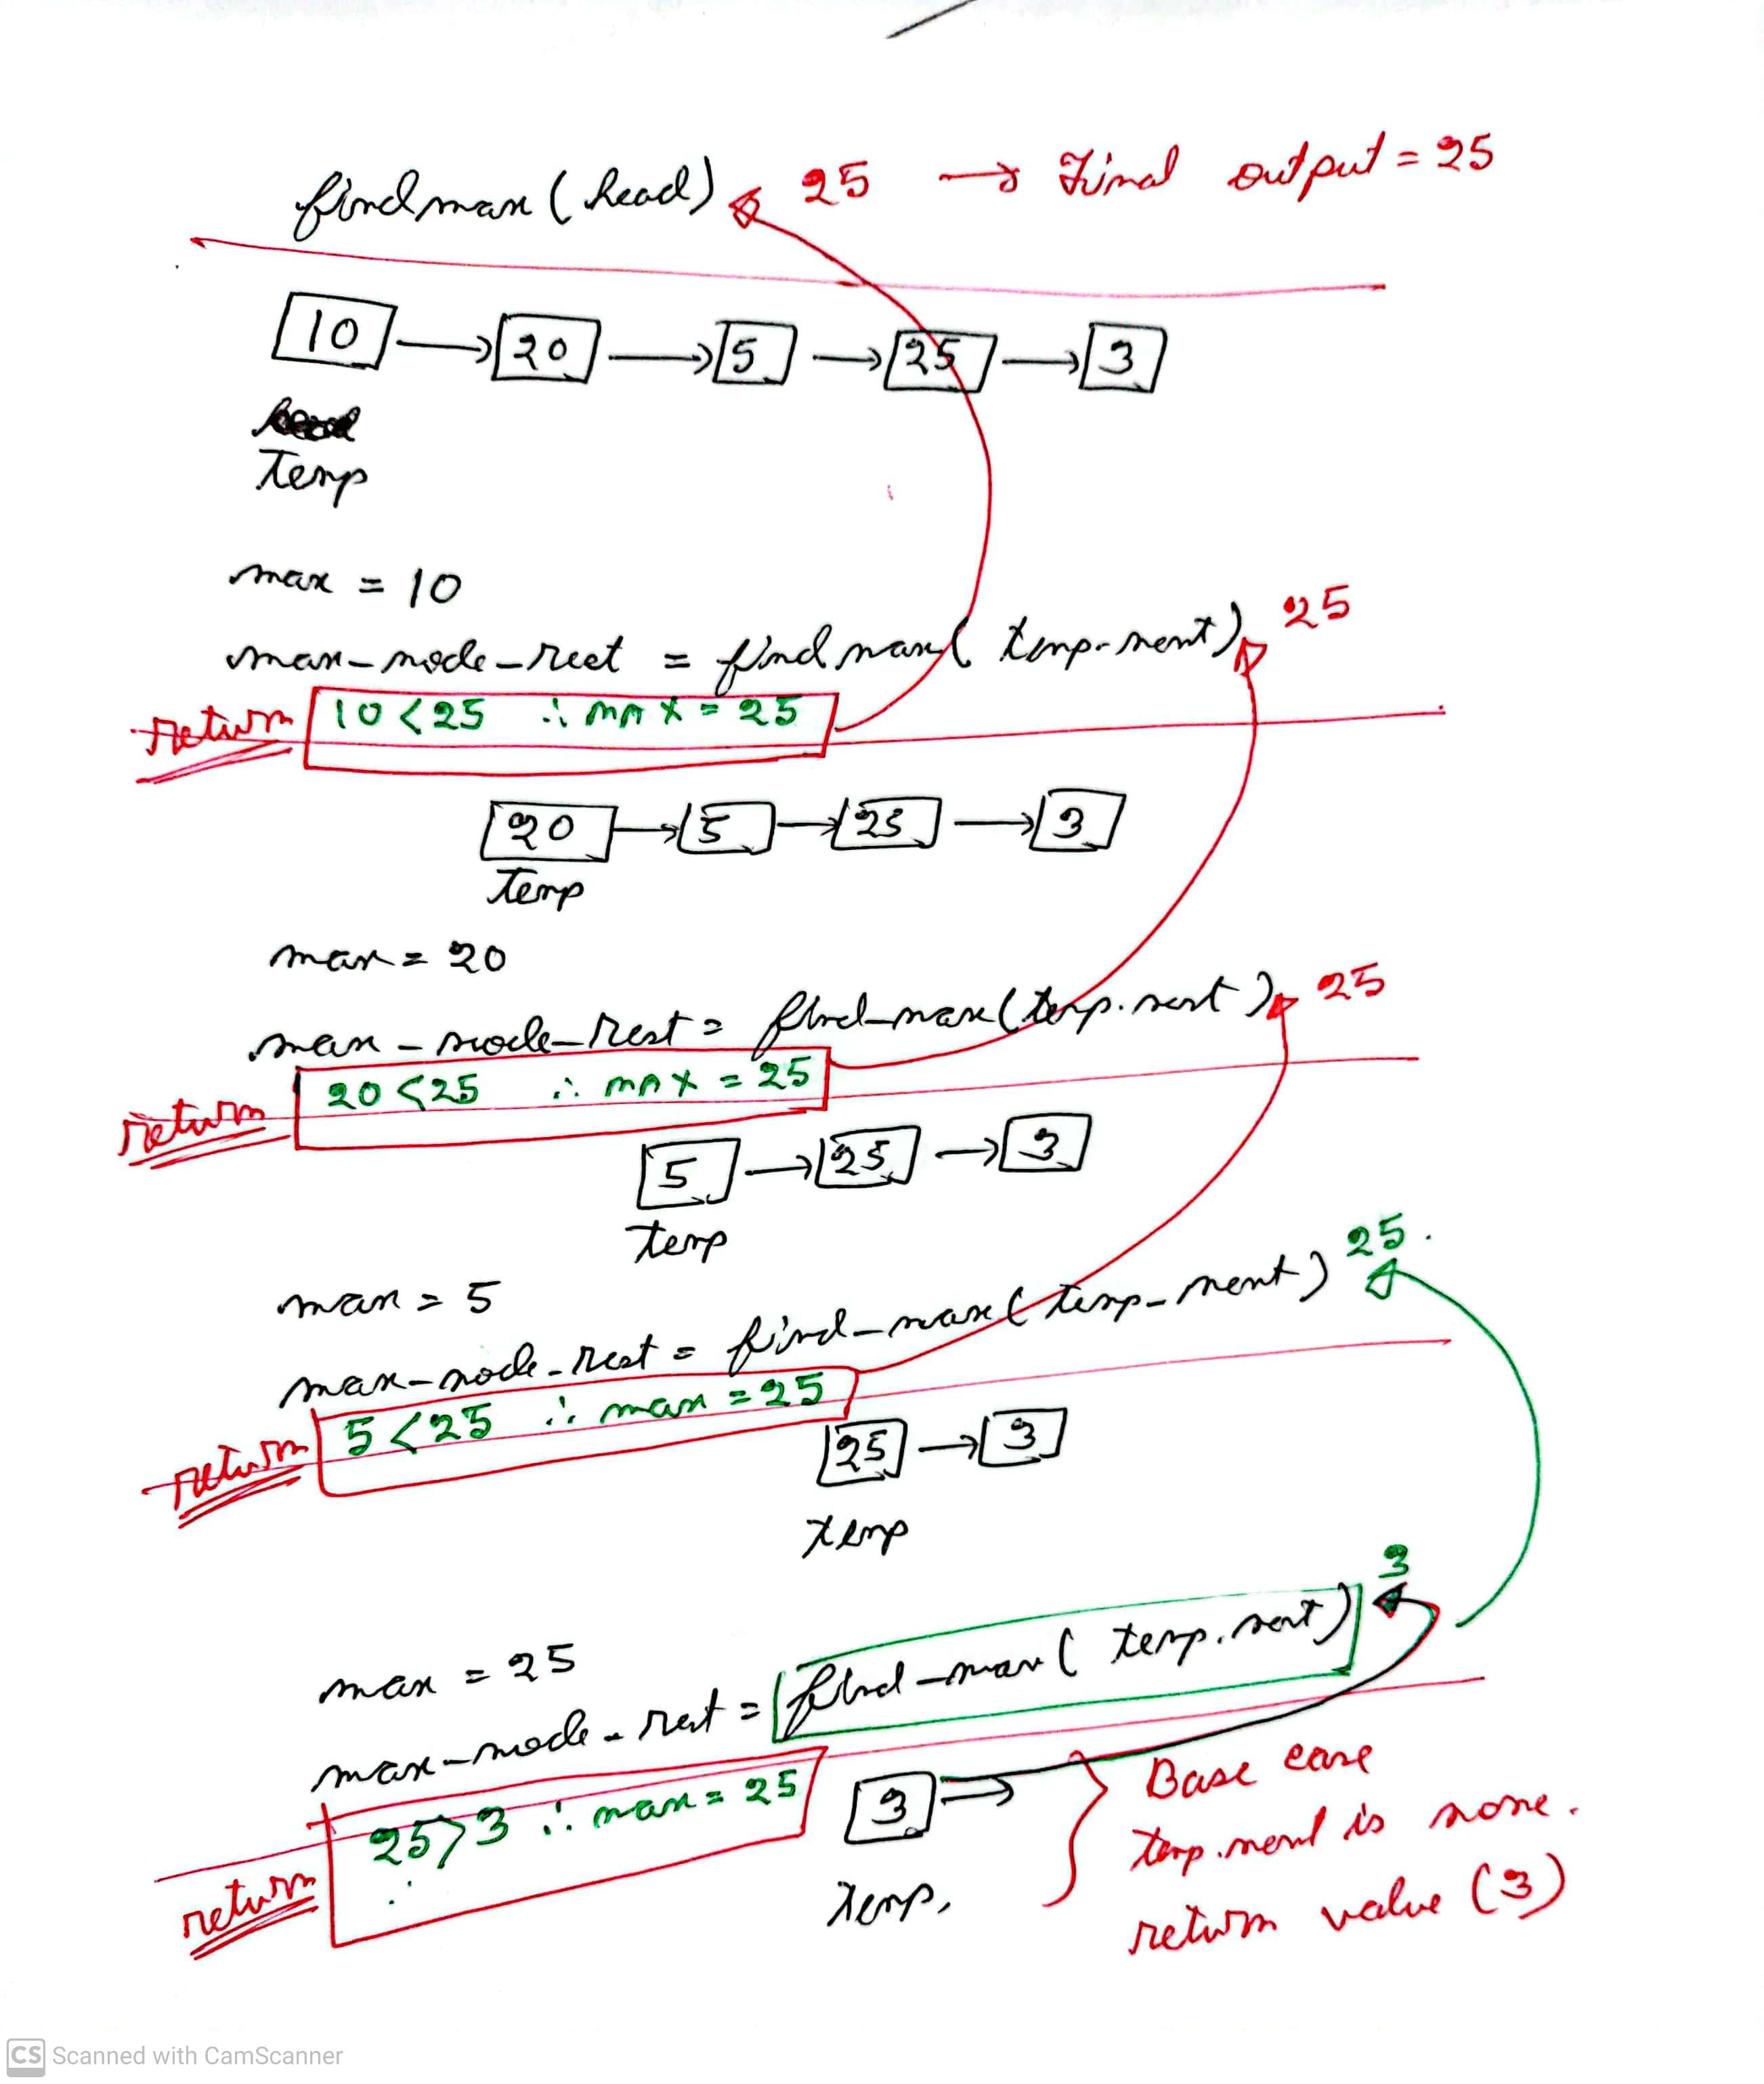 find max (head) 25 → Final output = 25
10 → 20 → 5 → 25 → 3
Temp
max = 10
max-node-rest = find max( temp.next) 25
return 10 < 25 ∴ MAX = 25
20 → 5 → 25 → 3
temp
max = 20
max-node-rest = find-max(temp.next) 25
return 20 < 25 ∴ MAX = 25
5 → 25 → 3
temp
max = 5
max-node-rest = find-max(temp-next) 25.
return 5 < 25 ∴ max = 25
25 → 3
temp
3
max = 25
max-node-rest = find-max( temp.next)
return 25 > 3 ∴ max = 25
3 →
temp.
Base case
temp.next is none.
return value (3)
CS Scanned with CamScanner